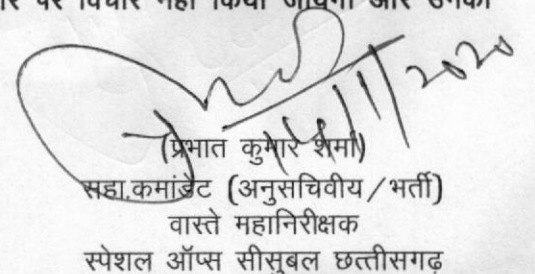 पर विचार नहीं किया जायेगा और उनका
14/11/2020
(प्रभात कुमार शर्मा)
सहा.कमांडेंट (अनुसचिवीय/भर्ती)
वास्ते महानिरीक्षक
स्पेशल ऑप्स सीसुबल छत्तीसगढ़